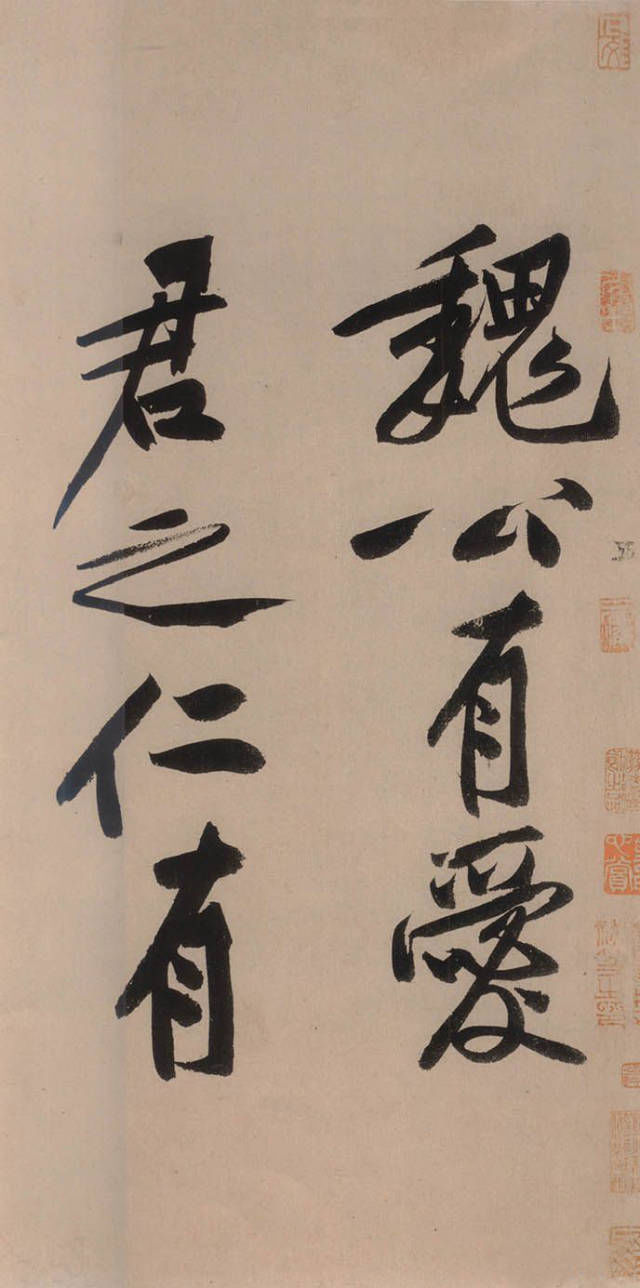 魏公有愛
君之仁有